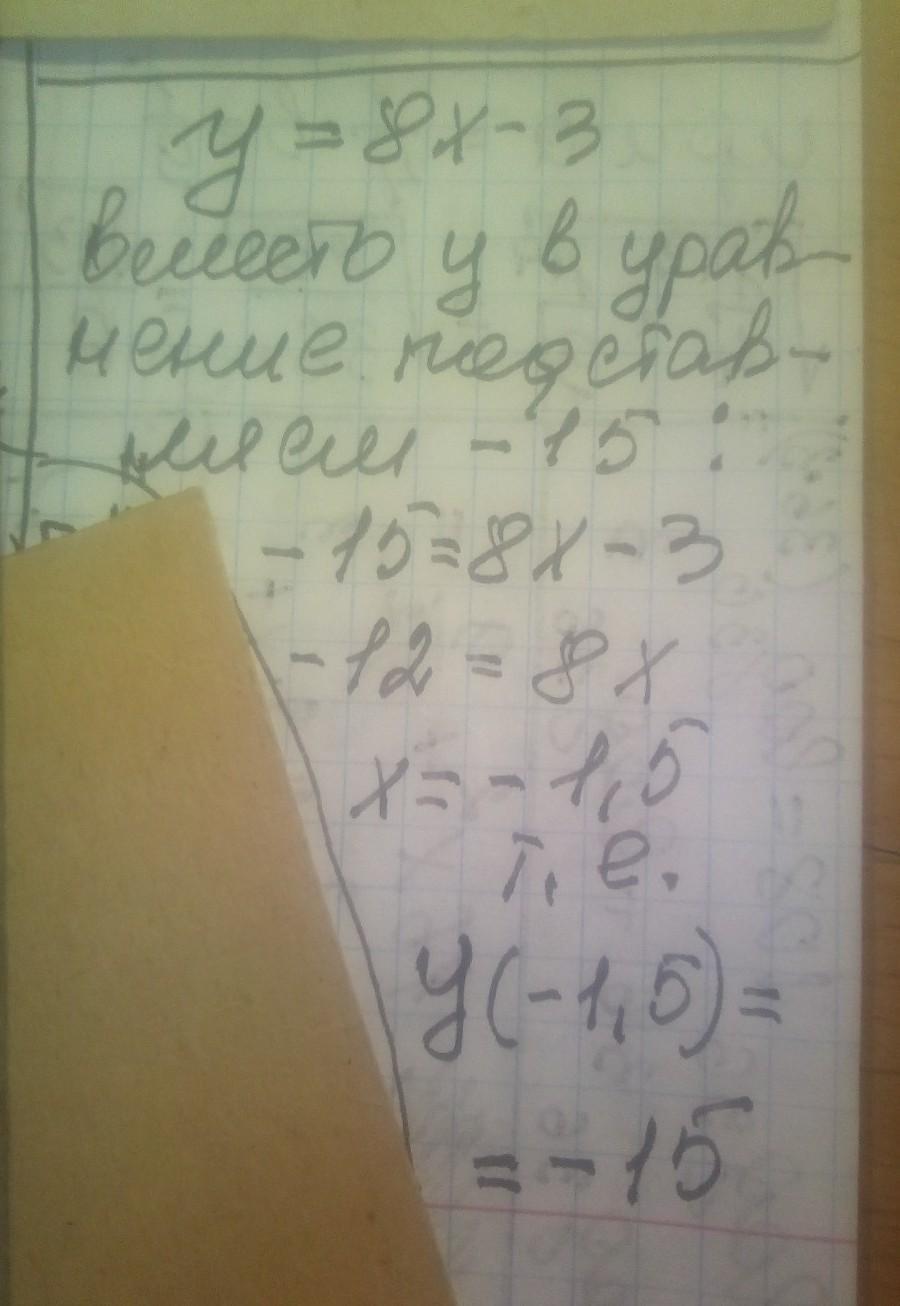 y = 8x - 3
вместо y в урав-
нение подстав-
ляем -15 :
-15 = 8x - 3
-12 = 8x
x = -1,5
т. е.
y(-1,5) =
= -15